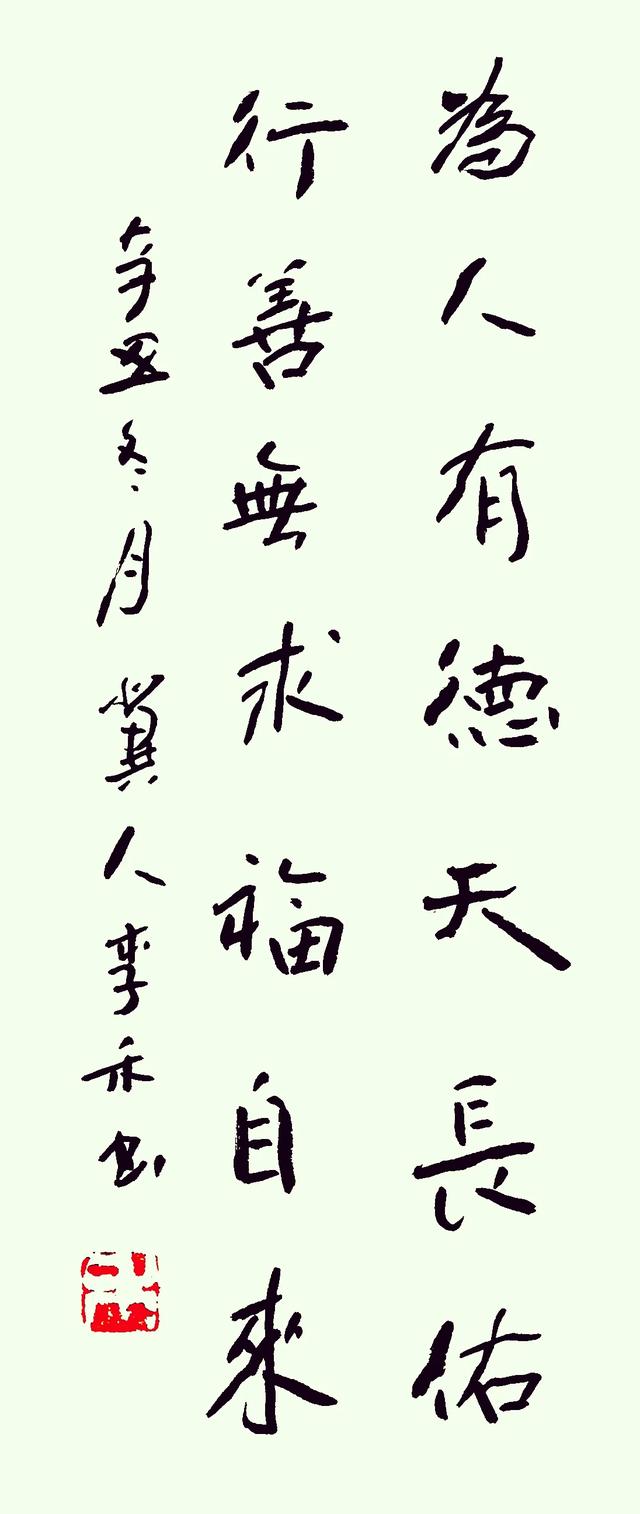 為人有德天長佑
行善無求福自來
辛丑冬月冀人李禾书